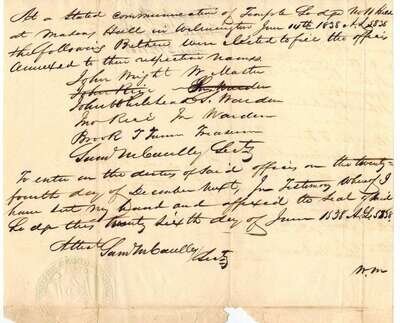 At a Stated communication of Temple Lodge No 11 held
at Masons Hall in Wilmington June 14th 1838 A. L. 5838
the following Bethren were elected to fill the offices
Annexed to their respective names
John Wright W. Master
John Rice S. Warden
John Whitehead S. Warden
Jno Rice Jn Warden
Brook T Turner Treasurer
Saml McCaulley Secty
To enter on the duties of said offices on the twenty-
fourth day of December Next, In Testimony Whereof I
have set my hand and affixed the Seal of said
Lodge this twenty Sixth day of June 1838 A. L. 5838
Attest Saml McCaulley Secty
W. M